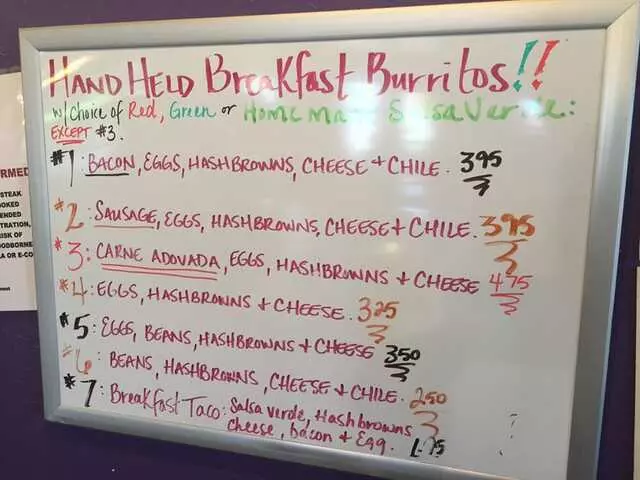 HAND HELD BREAKFAST BURRITOS!!
w/ CHOICE OF Red, Green or HOMEMA Salsa Verde:
EXCEPT #3.
#1 BACON, EGGS, HASHBROWNS, CHEESE + CHILE. 395
#2: SAUSAGE, EGGS, HASHBROWNS, CHEESE + CHILE. 395
#3: CARNE ADOVADA, EGGS, HASHBROWNS + CHEESE 475
#4: EGGS, HASHBROWNS + CHEESE. 325
#5: EGGS, BEANS, HASHBROWNS + CHEESE 350
#6: BEANS, HASHBROWNS, CHEESE + CHILE. 250
#7: Breakfast Taco: Salsa verde, Hashbrowns
cheese, bacon + Egg. 1.75
RMED
STEAK
OOKED
ENDED
TRATION,
RISK OF
OODBORNE
A OR E-CO